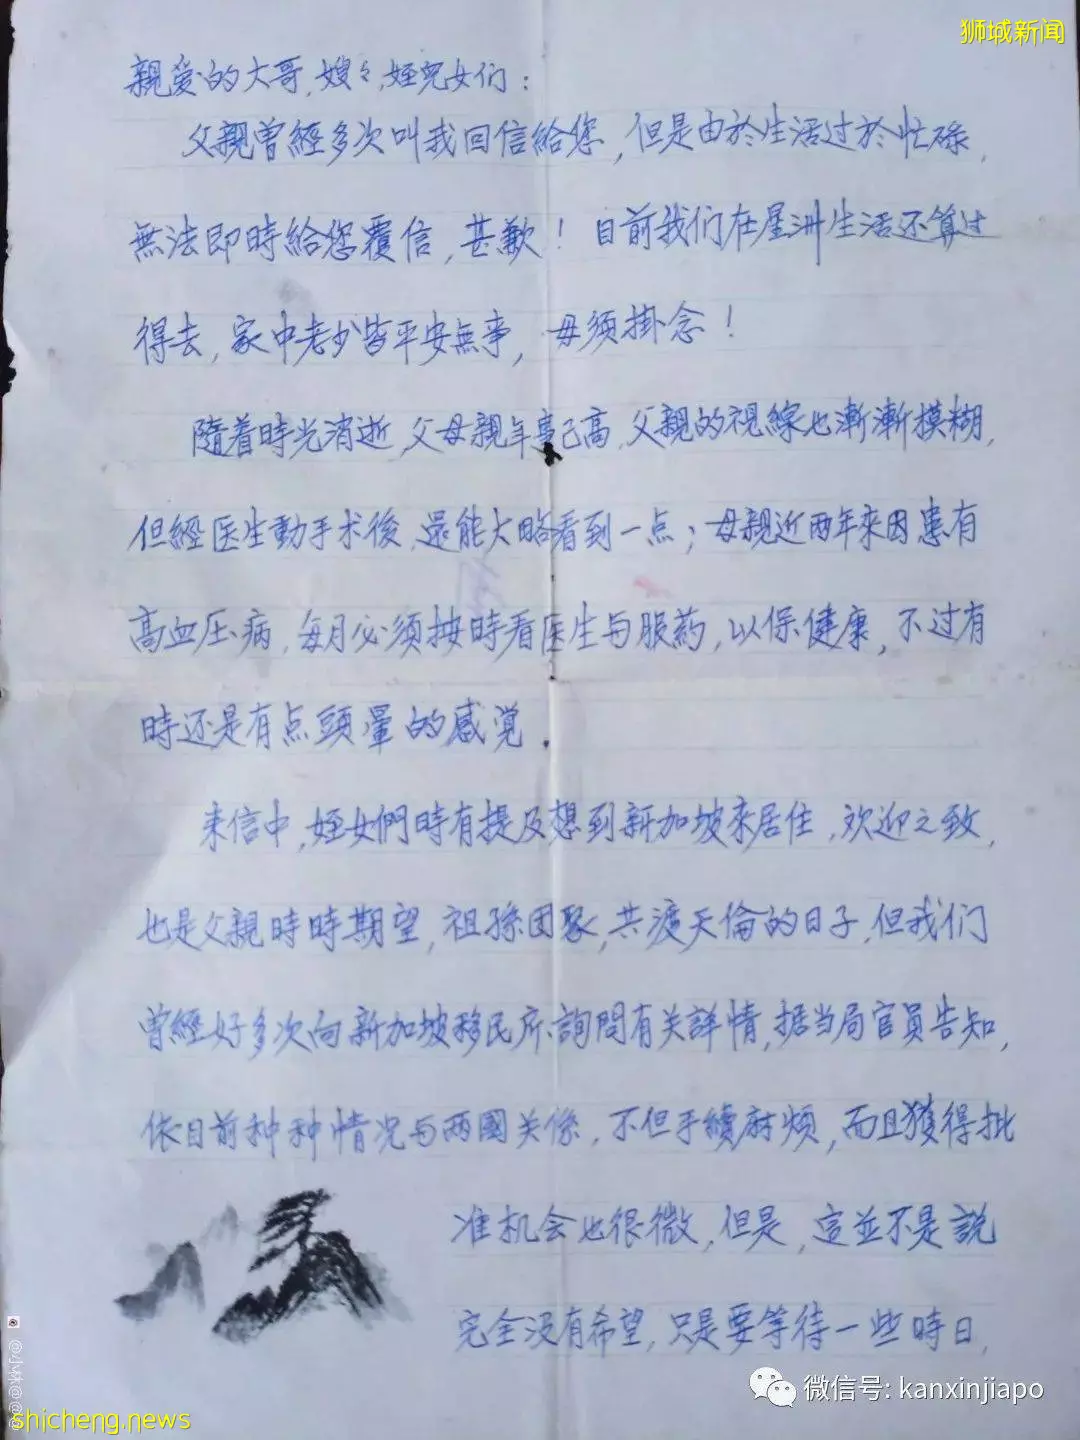 狮城新闻
親爱的大哥,嫂々,姪兒女们:
父親曾經多次叫我回信給您,但是由於生活过於忙碌,
無法即時給您覆信,甚歉!目前我们在星洲生活还算过
得去,家中老少皆平安無事,毋須掛念!
隨着時光消逝,父母親年事已高,父親的視線也漸漸模糊,
但經医生動手术後,還能大略看到一点;母親近两年來因患有
高血压病,每月必须按時看医生与服药,以保健康,不过有
時还是有点頭暈的感覚.
来信中,姪女們時有提及想到新加坡來居住,欢迎之致,
也是父親時時期望,祖孫团聚,共渡天倫的日子,但我们
曾經好多次向新加坡移民所詢問有关詳情,据当局官員告知,
依目前种种情况与两國关係,不但手續麻烦,而且獲得批
准机会也很微,但是,這並不是説
完全没有希望,只是要等待一些時日,
微信号: kanxinjiapo
shicheng.news